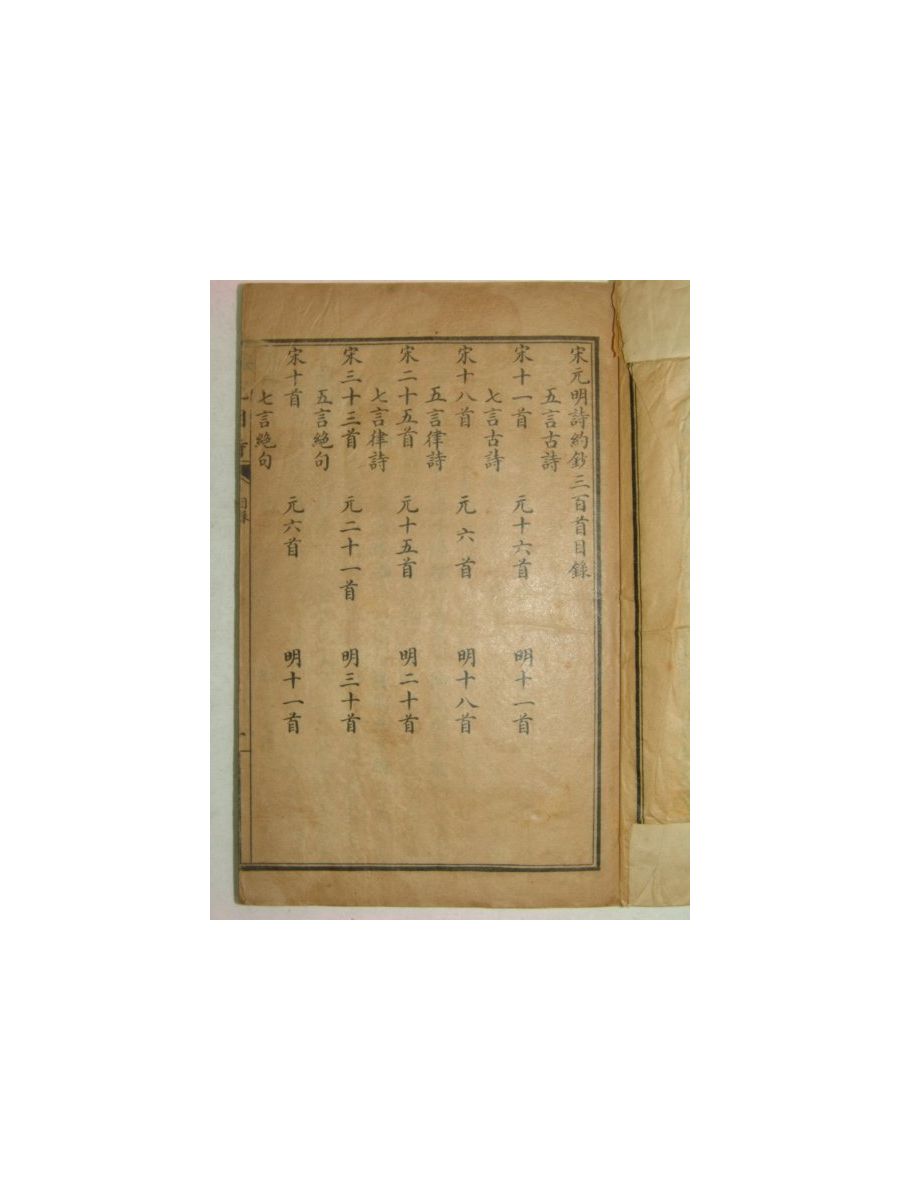 宋元明詩約鈔三百首目錄
五言古詩
宋十一首 元十六首 明十一首
七言古詩
宋十八首 元六首 明十八首
五言律詩
宋二十五首 元十五首 明二十首
七言律詩
宋三十三首 元二十一首 明三十首
五言絕句
宋十首 元六首 明十一首
七言絕句
目錄